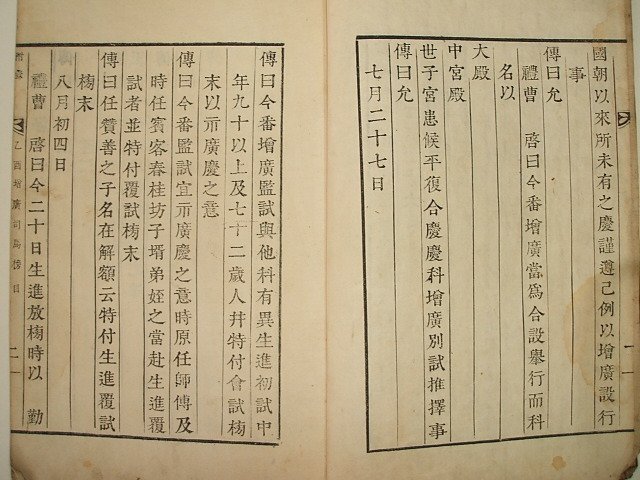 國朝以來所未有之慶謹遵己例以增廣設行
事
傳曰允
禮曹　啓曰今番增廣當爲合設擧行而科
名以
大殿
中宮殿
世子宮患候平復合慶慶科增廣別試推擇事
傳曰允
七月二十七日
傳曰今番增廣監試與他科有異生進初試中
年九十以上及七十二歲人幷特付會試榜
末以示廣慶之意
傳曰今番監試宜示廣慶之意時原任師傅及
時任賓客春桂坊子壻弟姪之當赴生進覆
試者並特付覆試榜末
傳曰任贊善之子名在解額云特付生進覆試
榜末
八月初四日
禮曹　啓曰今二十日生進放榜時以　勤
乙酉增廣司馬榜目　二